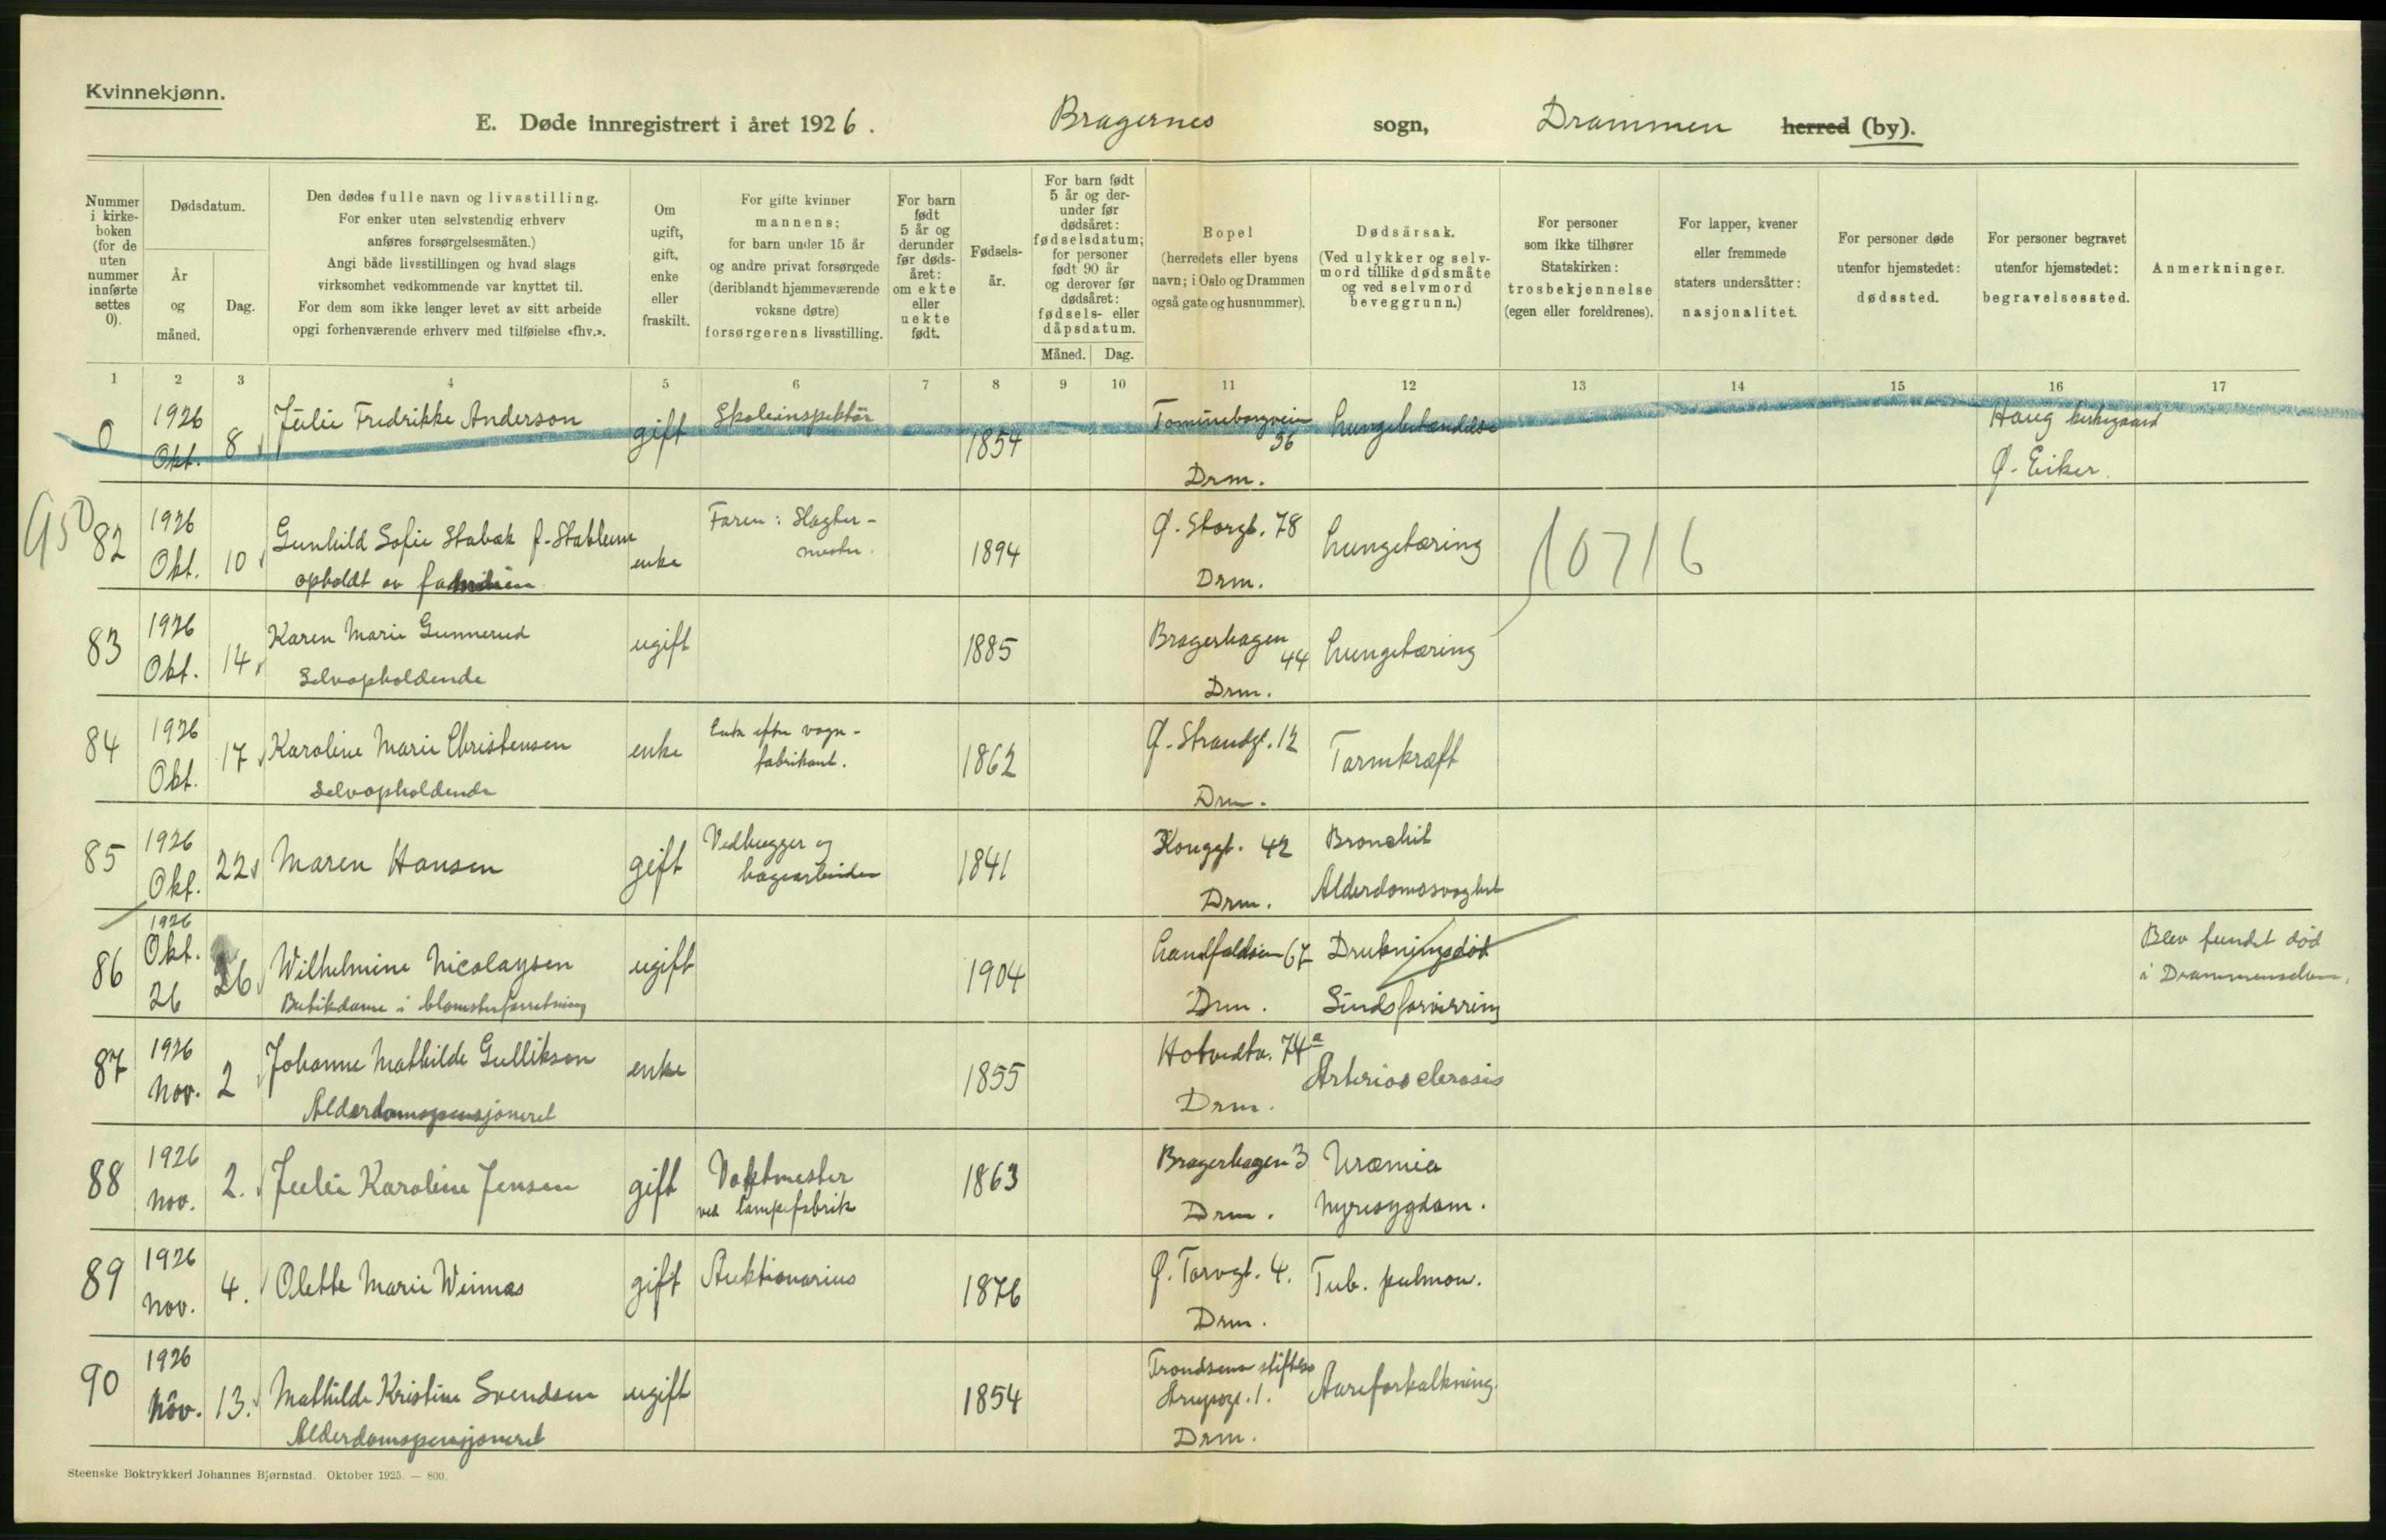 Kvinnekjønn.
E. Døde innregistrert i året 1926. Bragernes sogn, Drammen herred (by).
Nummer i kirkeboken (for de uten nummer innførte settes 0).
Dødsdatum.
År og måned.
Dag.
Den dødes fulle navn og livsstilling.
For enker uten selvstendig erhverv
anføres forsørgelsesmåten.)
Angi både livsstillingen og hvad slags
virksomhet vedkommende var knyttet til.
For dem som ikke lenger levet av sitt arbeide
opgi forhenværende erhverv med tilføielse «fhv.».
Om ugift, gift, enke eller fraskilt.
For gifte kvinner
mannens;
for barn under 15 år
og andre privat forsørgede
(deriblandt hjemmeværende
voksne døtre)
forsørgerens livsstilling.
For barn født 5 år og derunder før dødsåret: om ekte eller uekte født.
Fødselsår.
For barn født 5 år og derunder før dødsåret: fødselsdatum; for personer født 90 år og derover før dødsåret: fødsels- eller dåpsdatum.
Måned. Dag.
Bopel
(herredets eller byens
navn; i Oslo og Drammen
også gate og husnummer).
Dødsårsak.
(Ved ulykker og selv-
mord tillike dødsmåte
og ved selvmord
beveggrunn.)
For personer
som ikke tilhører
Statskirken:
trosbekjennelse
(egen eller foreldrenes).
For lapper, kvener
eller fremmede
staters undersåtter:
nasjonalitet.
For personer døde
utenfor hjemstedet:
dødssted.
For personer begravet
utenfor hjemstedet:
begravelsessted.
Anmerkninger.
1 2 3 4 5 6 7 8 9 10 11 12 13 14 15 16 17
0 1926 Okt. 8 Julie Fredrikke Anderson gift Skoleinspektør 1854 36 Drm. Lungebetændelse Haug kirkegaard
Ø. Eiker.
950
82 1926 Okt. 10 Gunhild Sofie Stabæk f. enke Faren: Slagter-
mester. 1894 Ø. Storgt. 78 Drm. Lungetæring 10716
opholdt av familien
83 1926 Okt. 14 Karen Marie Gunnerud ugift 1885 Bragerhagen 44 Drm. Lungetæring
Selvopholdende
84 1926 Okt. 17 Karoline Marie Christensen enke Enke efter vogn-
fabrikant. 1862 Ø. Strandgt. 12 Drm. Tarmkræft
Selvopholdende
85 1926 Okt. 22 Maren Hansen gift Vedhugger og
hagearbeider 1841 Konggt. 42 Drm. Bronchit
Alderdomssvaghet
86 1926 Okt. 26 26 Wilhelmine Nicolaysen ugift 1904 67 Drm. Drukningsdød
Sindsforvirring
Butikdame i blomsterforretning
Blev fundet død
i Drammenselven.
87 1926 Nov. 2 Johanne Mathilde Gulliksen enke 1855 Hotvedtv. 74a Drm. Arteriosclerosis
Alderdomspensjoneret
88 1926 Nov. 2. Julie Karoline Jensen gift Vaktmester
ved lampefabrik 1863 Bragerhagen 3 Drm. Uræmia
Nyresygdom.
89 1926 Nov. 4. Olette Marie Weinaas gift Auktionarius 1876 Ø. Torvgt. 4. Drm. Tub. pulmon.
90 1926 Nov. 13. Mathilde Kristine Svendsen ugift 1854 Trondsens stiftelse
Strupsgt. 1.
Drm. Aareforkalkning.
Alderdomspensjoneret
Steenske Boktrykkeri Johannes Bjørnstad. Oktober 1925. — 800.